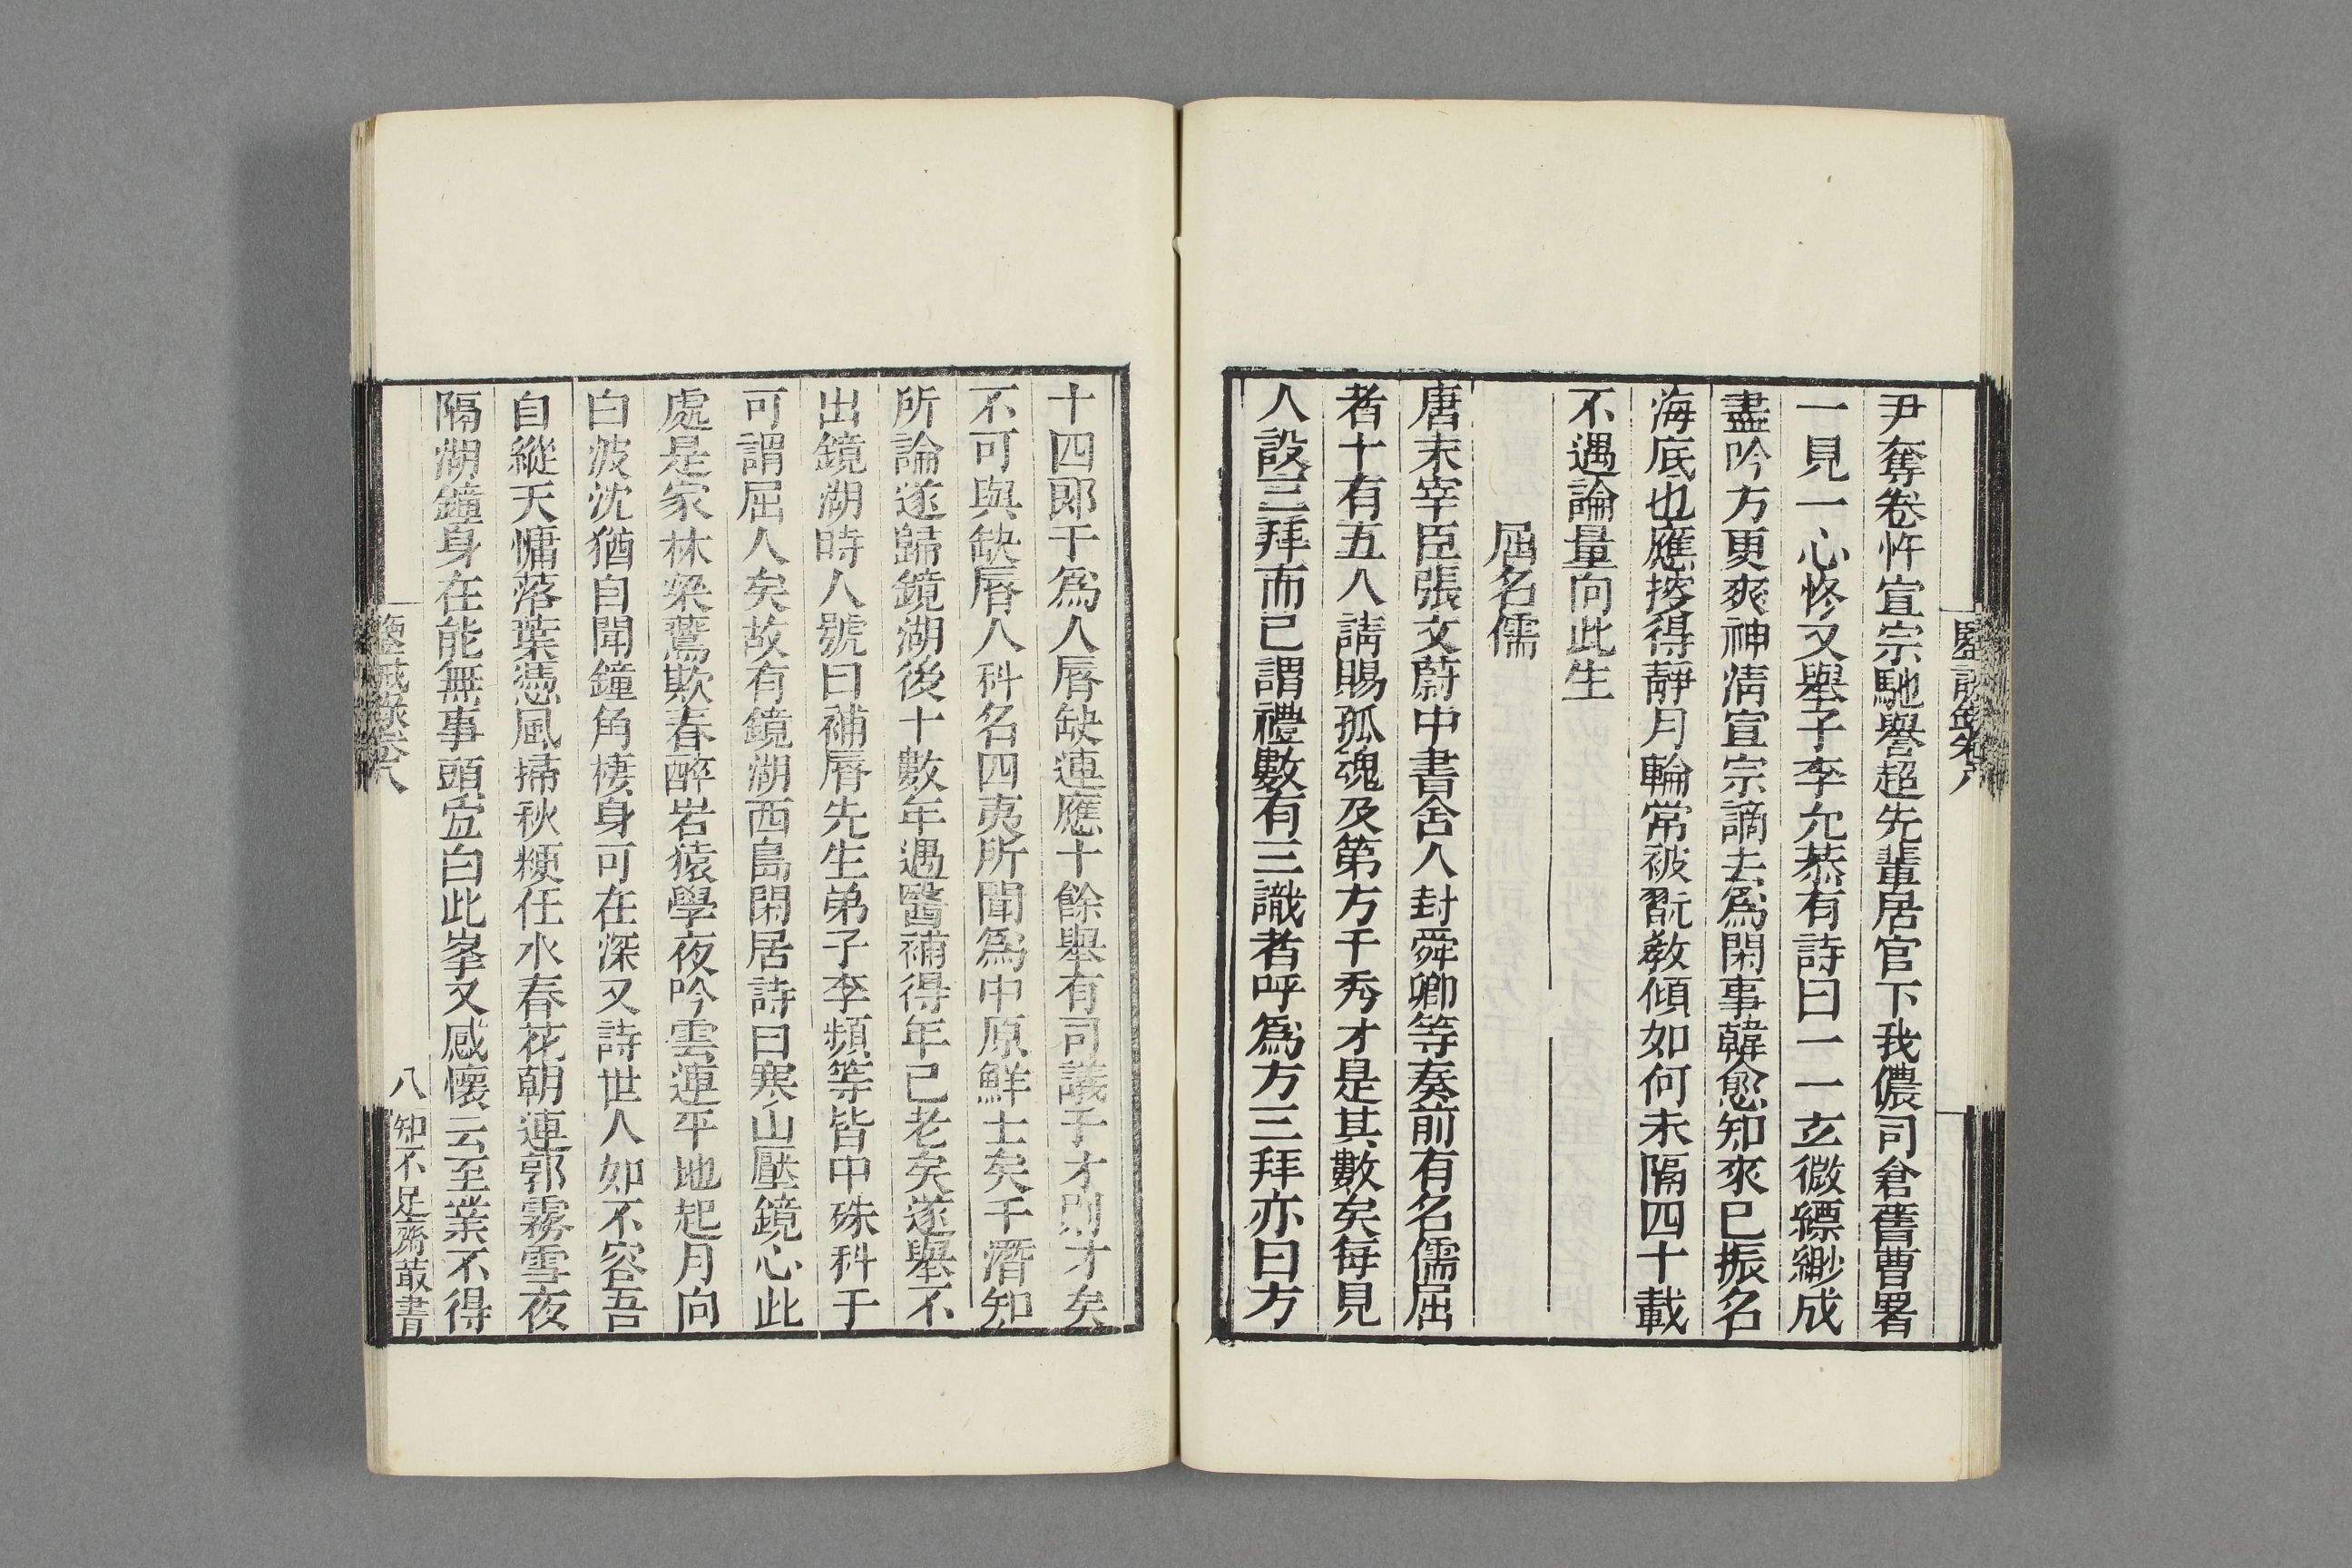 尹奪卷忤宣宗馳譽超先輩居官下我儂司倉舊曹署
一見一心悠又舉子李允恭有詩曰一一玄微縹緲成
盡吟方更爽神淸宣宗謫去爲閑事韓愈知來已振名
海底也應搜得靜月輪常被翫敎傾如何未隔四十載
不遇論量向此生
屈名儒
唐末宰臣張文蔚中書舍人封舜卿等奏前有名儒屈
者十有五人請賜孤魂及第方干秀才是其數矣每見
人設三拜而已謂禮數有三識者呼爲方三拜亦曰方
十四郎干爲人唇缺連應十餘舉有司議干才則才矣
不可與缺唇人科名四夷所聞爲中原鮮士矣干潛知
所論遂歸鏡湖後十數年遇醫補得年已老矣遂舉不
出鏡湖時人號曰補唇先生弟子李頻等皆中殊科于
可謂屈人矣故有鏡湖西島閑居詩曰寒山壓鏡心此
處是家林梁鷰欺春醉岩猿學夜吟雲連平地起月向
白波沈猶自聞鐘角棲身可在深又詩世人如不容吾
自縱天慵落葉憑風掃秋粳任水舂花朝連郭霧雪夜
隔湖鐘身在能無事頭宜白此峯又感懷云至業不得
鑒誡錄卷八
八
知不足齋叢書